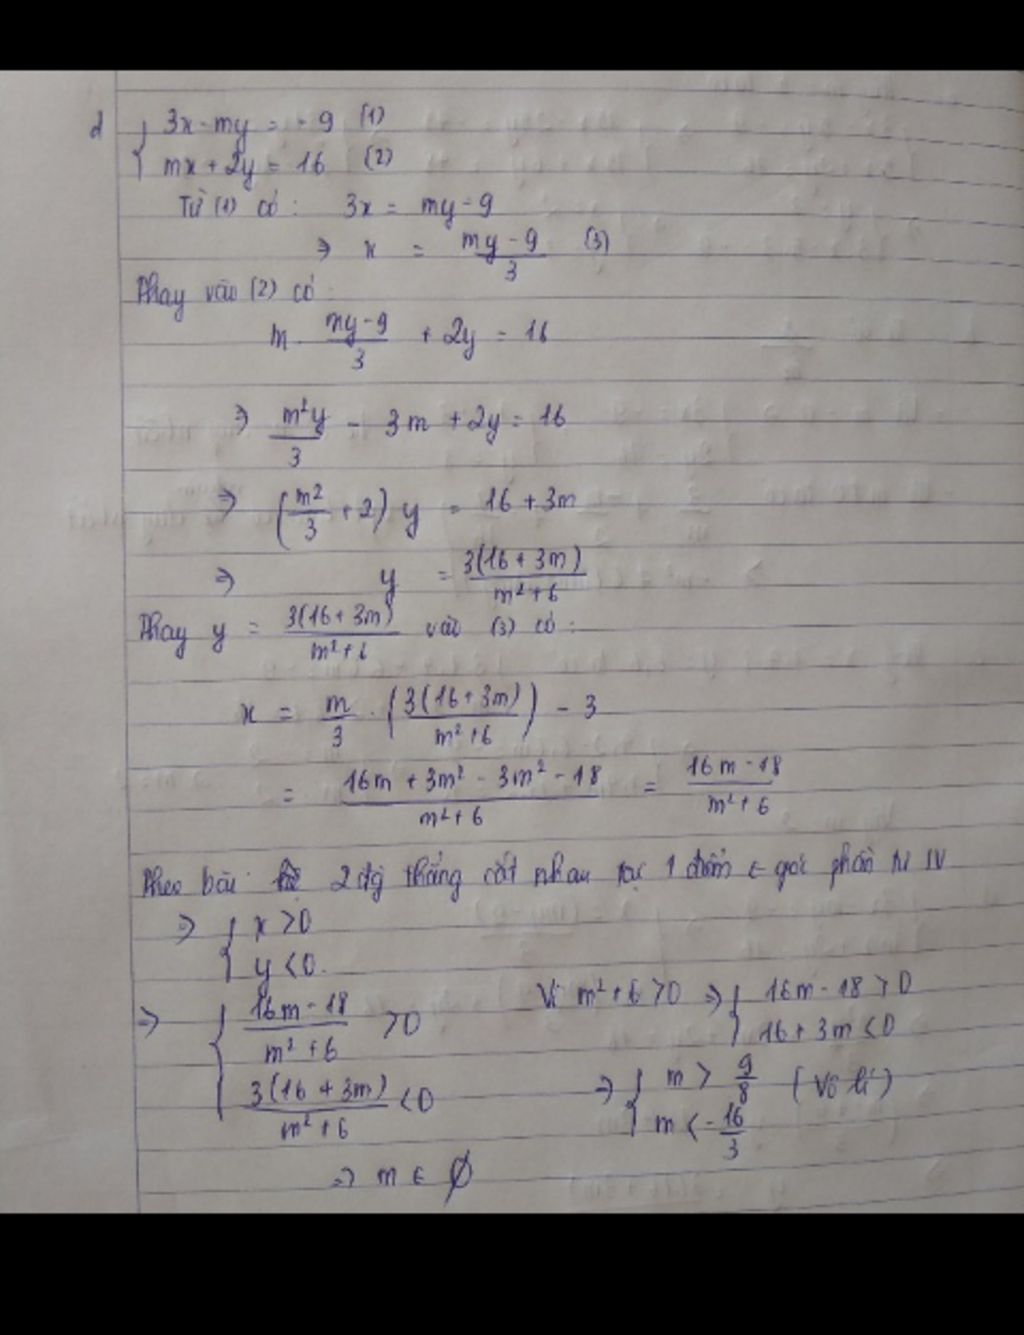 d { 3x - my = -9 (1)
mx + 2y = 16 (2)
Từ (1) có : 3x = my - 9
⇒ x = (my - 9)/3 (3)
Thay vào (2) có :
m . (my - 9)/3 + 2y = 16
⇒ m²y/3 - 3m + 2y = 16
⇒ (m²/3 + 2) y = 16 + 3m
⇒ y = 3(16 + 3m)/(m² + 6)
Thay y = 3(16 + 3m)/(m² + 6) vào (3) có :
x = m/3 . (3(16 + 3m)/(m² + 6)) - 3
= (16m + 3m² - 3m² - 18)/(m² + 6) = (16m - 18)/(m² + 6)
Theo bài 2 đg thẳng cắt nhau tại 1 điểm ∈ góc phần tư IV
⇒ { x > 0
y < 0.
⇒ { (16m - 18)/(m² + 6) > 0 Vì m² + 6 > 0 ⇒ { 16m - 18 > 0
16 + 3m < 0
3(16 + 3m)/(m² + 6) < 0 ⇒ { m > 9/8 (Vô lí)
m < -16/3
⇒ m ∈ ∅